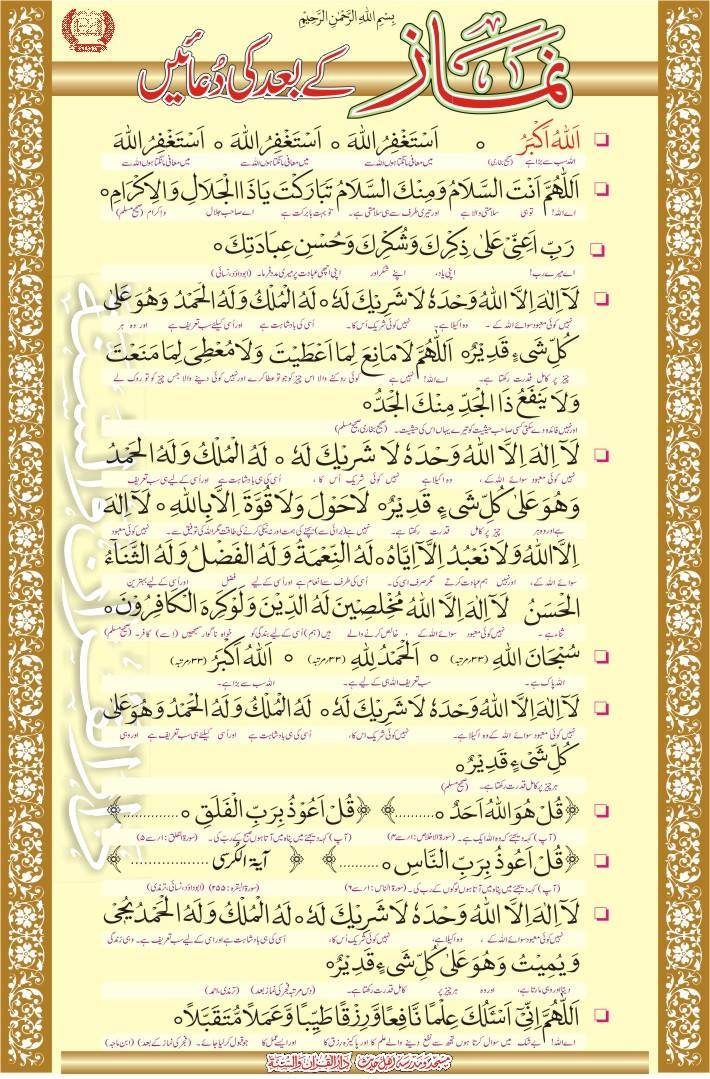 بِسْمِ اللهِ الرَّحْمٰنِ الرَّحِيْمِ
نماز کے بعد کی دُعائیں
اَللهُ اَكْبَرُ ० اَسْتَغْفِرُ اللهَ ० اَسْتَغْفِرُ اللهَ ० اَسْتَغْفِرُ اللهَ
اللہ سب سے بڑا ہے (صحیح بخاری) میں معافی مانگتا ہوں اللہ سے میں معافی مانگتا ہوں اللہ سے میں معافی مانگتا ہوں اللہ سے
اَللّٰهُمَّ اَنْتَ السَّلَامُ وَمِنْكَ السَّلَامُ تَبَارَكْتَ يَاذَا الْجَلَالِ وَالْاِكْرَامِ ०
اے اللہ! تو ہی سلامتی والا ہے اور تیری طرف سے ہی سلامتی ہے۔ تو بہت بابرکت ہے اے صاحب جلال و اکرام (صحیح مسلم)
رَبِّ اَعِنِّىْ عَلٰى ذِكْرِكَ وَشُكْرِكَ وَحُسْنِ عِبَادَتِكَ ०
اے میرے رب! اپنی یاد، اپنے شکر اور اپنی اچھی عبادت پر میری مدد فرما۔ (ابوداؤد، نسائی)
لَآ اِلٰهَ اِلَّا اللهُ وَحْدَهٗ لَا شَرِيْكَ لَهٗ ० لَهُ الْمُلْكُ وَلَهُ الْحَمْدُ وَهُوَ عَلٰى
نہیں کوئی معبود سوائے اللہ کے۔ وہ اکیلا ہے، نہیں کوئی شریک اُس کا، اُسی کی بادشاہت ہے اور اُسی کیلئے سب تعریف ہے اور وہ ہر
كُلِّ شَىْءٍ قَدِيْرٌ ० اَللّٰهُمَّ لَا مَانِعَ لِمَا اَعْطَيْتَ وَلَا مُعْطِىَ لِمَا مَنَعْتَ
چیز پر کامل قدرت رکھتا ہے۔ اے اللہ! نہیں ہے کوئی روکنے والا اس چیز کو جو تو عطا کرے اور نہیں کوئی دینے والا جس چیز کو تو روک لے
وَلَا يَنْفَعُ ذَا الْجَدِّ مِنْكَ الْجَدُّ ०
اور نہیں فائدہ دے سکتی کسی صاحب حیثیت کو تیرے یہاں اس کی حیثیت۔ (صحیح بخاری، صحیح مسلم)
لَآ اِلٰهَ اِلَّا اللهُ وَحْدَهٗ لَا شَرِيْكَ لَهٗ ० لَهُ الْمُلْكُ وَلَهُ الْحَمْدُ
نہیں کوئی معبود سوائے اللہ کے، وہ اکیلا ہے نہیں کوئی شریک اُس کا، اُسی کی ہی بادشاہت ہے اور اُسی کے لیے ہی سب تعریف
وَهُوَ عَلٰى كُلِّ شَىْءٍ قَدِيْرٌ ० لَا حَوْلَ وَلَا قُوَّةَ اِلَّا بِاللهِ ० لَآ اِلٰهَ
ہے اور وہ ہر چیز پر کامل قدرت رکھتا ہے۔ نہیں ہے (برائی سے) بچنے کی ہمت اور نہ نیکی کرنے کی طاقت مگر اللہ کی توفیق سے۔ نہیں کوئی معبود
اِلَّا اللهُ وَلَا نَعْبُدُ اِلَّآ اِيَّاهُ ० لَهُ النِّعْمَةُ وَلَهُ الْفَضْلُ وَلَهُ الثَّنَآءُ
سوائے اللہ کے، اور نہیں ہم عبادت کرتے مگر صرف اسی کی۔ اُسی کی طرف سے انعام ہے اور اسی کے لیے فضل اور اُسی کے لیے بہترین
الْحَسَنُ لَآ اِلٰهَ اِلَّا اللهُ مُخْلِصِيْنَ لَهُ الدِّيْنَ وَلَوْ كَرِهَ الْكَافِرُوْنَ ०
ثناء ہے۔ نہیں کوئی معبود سوائے اللہ کے خالص کرنے والے ہیں (ہم) اُسی کے لیے بندگی کو خواہ ناگوار سمجھیں (اسے) کافر۔ (صحیح مسلم)
سُبْحَانَ اللهِ (۳۳ مرتبہ) ० اَلْحَمْدُ لِلّٰهِ (۳۳ مرتبہ) ० اَللهُ اَكْبَرُ (۳۳ مرتبہ)
اللہ پاک ہے۔ سب تعریف اللہ ہی کے لیے ہے۔ اللہ سب سے بڑا ہے۔
لَآ اِلٰهَ اِلَّا اللهُ وَحْدَهٗ لَا شَرِيْكَ لَهٗ ० لَهُ الْمُلْكُ وَلَهُ الْحَمْدُ وَهُوَ عَلٰى
نہیں کوئی معبود سوائے اللہ کے وہ اکیلا ہے۔ نہیں کوئی شریک اُس کا، اُسی کی ہی بادشاہت ہے اور اُسی کیلئے ہی سب تعریف ہے اور وہی
كُلِّ شَىْءٍ قَدِيْرٌ ०
ہر چیز پر کامل قدرت رکھتا ہے۔ (صحیح مسلم)
﴿قُلْ هُوَ اللهُ اَحَدٌ ० ............﴾ ﴿قُلْ اَعُوْذُ بِرَبِّ الْفَلَقِ ० ............﴾
(آپ) کہہ دیجئے کہ وہ اللہ ایک ہے۔ (سورۃ الاخلاص: ۱ سے ۴) (آپ) کہہ دیجئے میں پناہ میں آتا ہوں صبح کے رب کی۔ (سورۃ الفلق: ۱ سے ۵)
﴿قُلْ اَعُوْذُ بِرَبِّ النَّاسِ ० ............﴾ ﴿آیۃ الکرسی ............﴾
(آپ) کہہ دیجئے میں پناہ میں آتا ہوں لوگوں کے رب کی۔ (سورۃ الناس: ۱ سے ۶) (سورۃ البقرہ: ۲۵۵) (ابوداؤد، نسائی، ترمذی)
لَآ اِلٰهَ اِلَّا اللهُ وَحْدَهٗ لَا شَرِيْكَ لَهٗ ० لَهُ الْمُلْكُ وَلَهُ الْحَمْدُ يُحْيِىْ
نہیں کوئی معبود سوائے اللہ کے، وہ اکیلا ہے، نہیں کوئی شریک اُس کا، اُسی کی ہی بادشاہت ہے اور اسی کے لیے سب تعریف ہے۔ وہی زندگی
وَيُمِيْتُ وَهُوَ عَلٰى كُلِّ شَىْءٍ قَدِيْرٌ ०
دیتا اور وہی مارتا ہے، اور وہ ہر چیز پر کامل قدرت رکھتا ہے۔ (دس مرتبہ فجر کی نماز بعد) (ترمذی، احمد)
اَللّٰهُمَّ اِنِّىْ اَسْئَلُكَ عِلْمًا نَّافِعًا وَّرِزْقًا طَيِّبًا وَّعَمَلًا مُّتَقَبَّلًا ०
اے اللہ! بے شک میں سوال کرتا ہوں تجھ سے نفع دینے والے علم کا اور پاکیزہ رزق کا اور ایسے عمل کا جو قبول کر لیا جائے۔ (فجر کی نماز کے بعد) (ابن ماجہ)
مسجد و مدرسہ اھل حدیث دار القرآن والسنۃ
دار القرآن والسنة